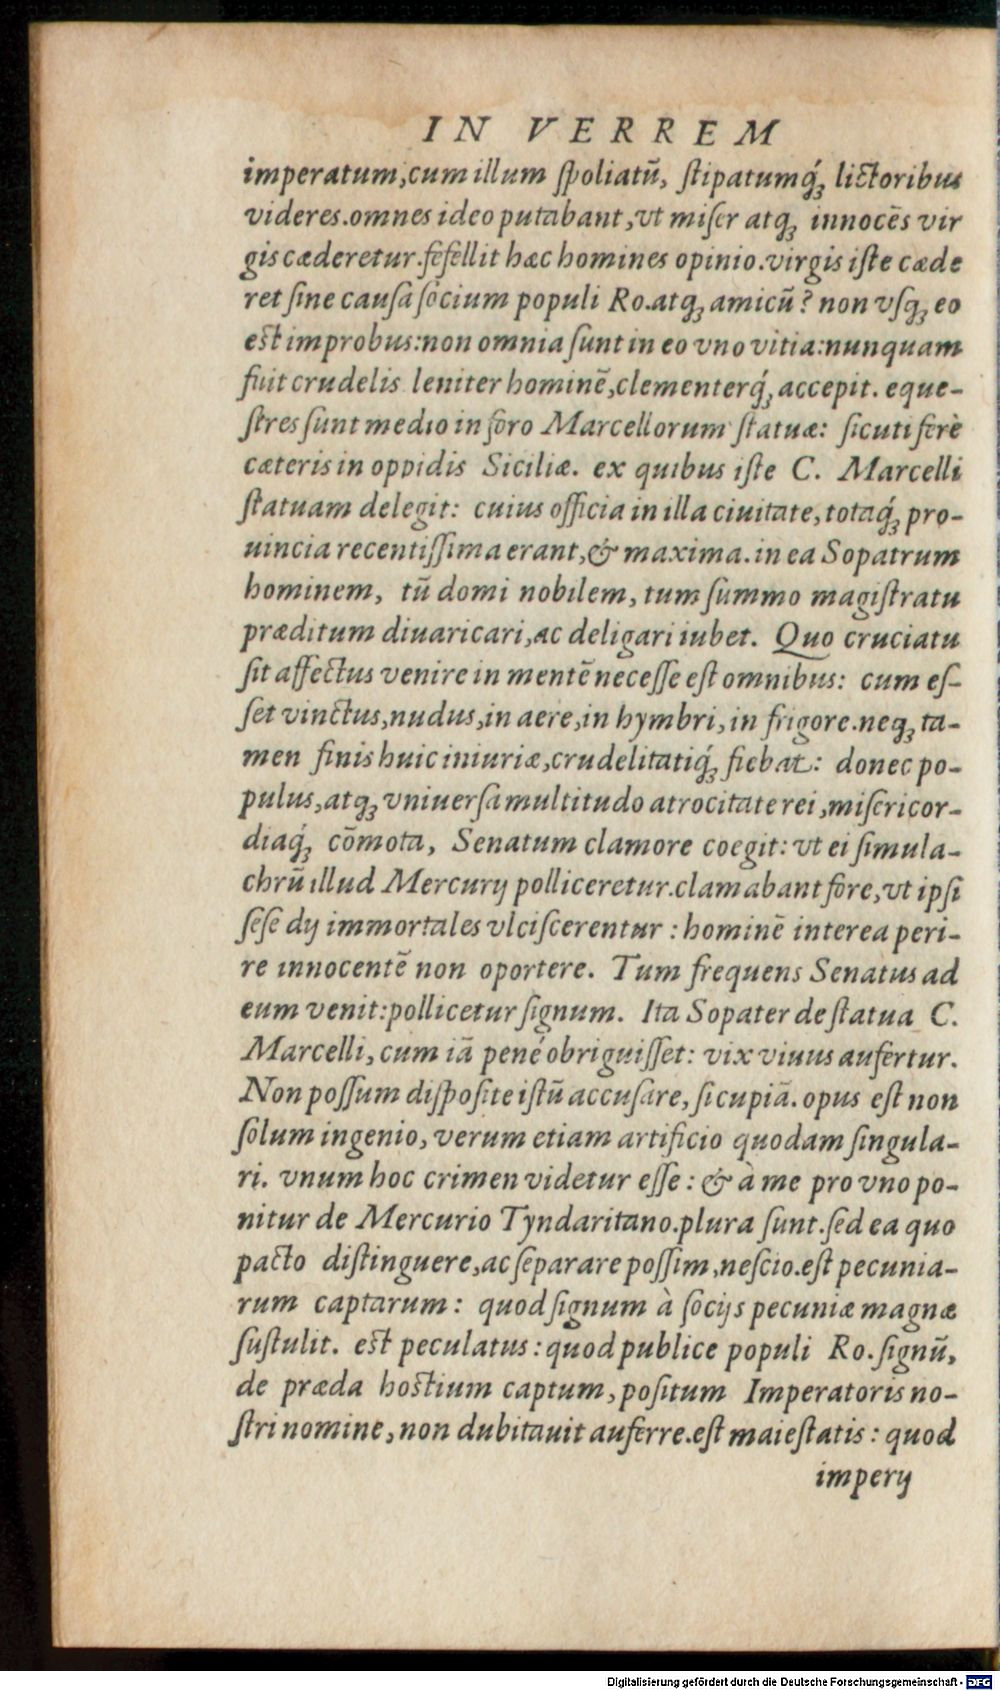 IN VERREM
imperatum,cum illum ſpoliatũ, ſtipatumq́ꝫ lictoribus
videres.omnes ideo putabant,vt miſer atqꝫ innocẽs vir
gis cæderetur.fefellit hæc homines opinio.virgis iſte cæde
ret ſine cauſa ſocium populi Ro.atqꝫ amicũ? non vſqꝫ eo
est improbus:non omnia ſunt in eo vno vitia:nunquam
fuit crudelis leniter hominẽ,clementerq́ꝫ accepit. eque-
ſtres ſunt medio in foro Marcellorum ſtatuæ: ſicuti ferè
cæteris in oppidis Siciliæ. ex quibus iſte C. Marcelli
ſtatuam delegit: cuius officia in illa ciuitate,totaq́ꝫ pro-
uincia recentiſſima erant,& maxima.in ea Sopatrum
hominem, tũ domi nobilem, tum ſummo magiſtratu
præditum diuaricari,ac deligari iubet. Quo cruciatu
ſit affectus venire in mentẽ neceſſe eſt omnibus: cum eſ-
ſet vinctus,nudus,in aere,in hymbri,in frigore.neqꝫ ta-
men finis huic iniuriæ,crudelitatiq́ꝫ fiebat: donec po-
pulus,atqꝫ vniuerſa multitudo atrocitate rei,miſericor-
diaq́ꝫ cõmota, Senatum clamore coegit: vt ei ſimula-
chrũ illud Mercurij polliceretur.clamabant fore,vt ipſi
ſeſe dij immortales vlciſcerentur : hominẽ interea peri-
re innocentẽ non oportere. Tum frequens Senatus ad
eum venit:pollicetur ſignum. Ita Sopater de ſtatua C.
Marcelli, cum iã pené obriguiſſet: vix viuus aufertur.
Non poſſum diſpoſite iſtũ accuſare, ſi cupiã. opus eſt non
ſolum ingenio, verum etiam artificio quodam ſingula-
ri. vnum hoc crimen videtur eſſe : & à me pro vno po-
nitur de Mercurio Tyndaritano.plura ſunt.ſed ea quo
pacto diſtinguere,ac ſeparare poſſim,neſcio.eſt pecunia-
rum captarum : quod ſignum à ſocijs pecuniæ magnæ
ſuſtulit. est peculatus : quod publice populi Ro. ſignũ,
de præda hostium captum, poſitum Imperatoris no-
ſtri nomine, non dubitauit auferre.eſt maieſtatis : quod
imperij
Digitalisierung gefördert durch die Deutsche Forschungsgemeinschaft - DFG